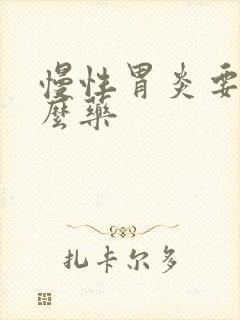 慢性胃炎要
麼藥
扎卡尔多